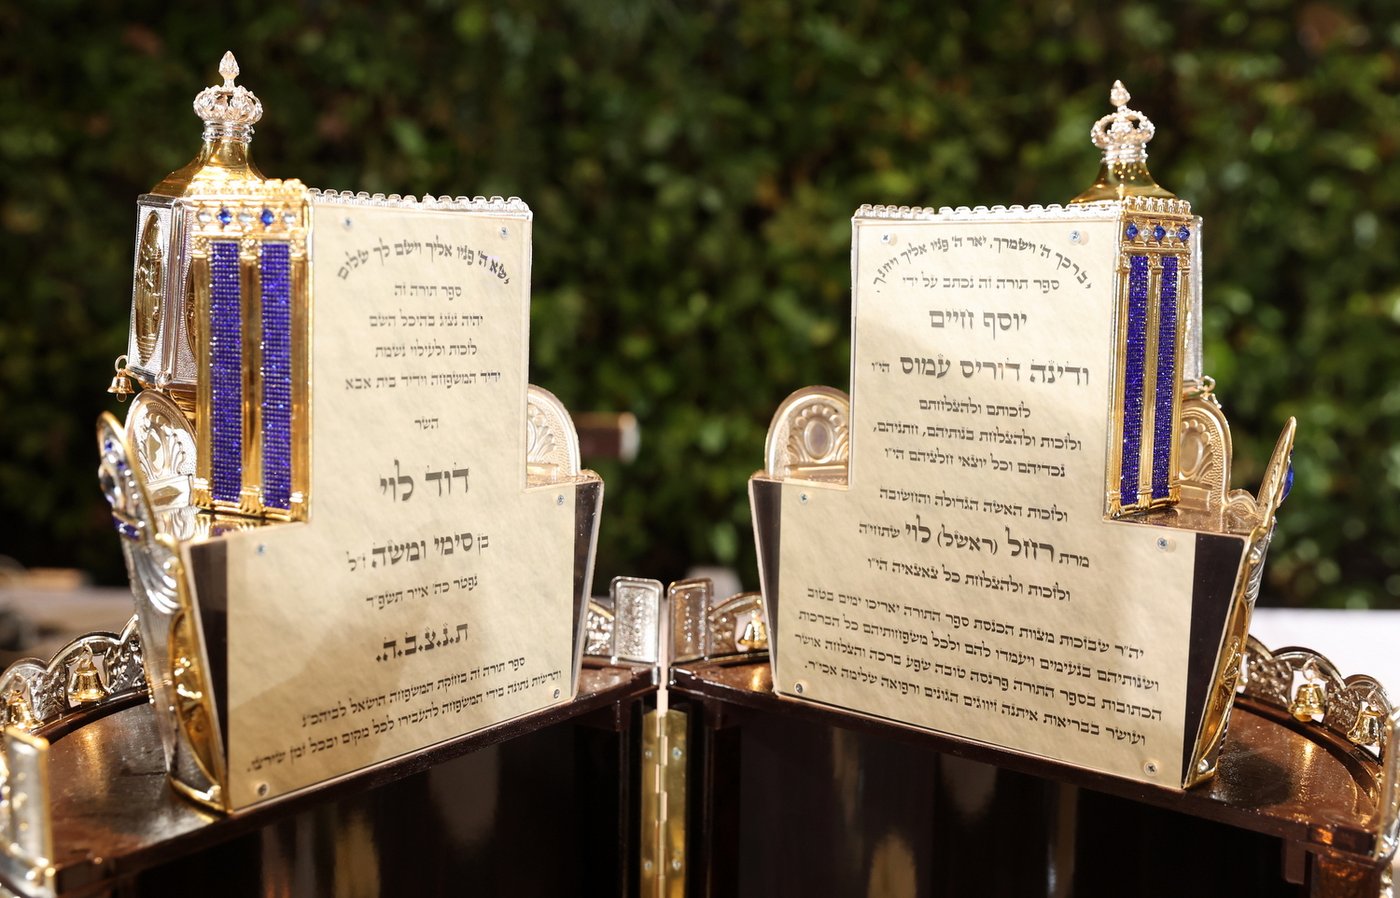 יברכך ה' וישמרך, יאר ה' פניו אליך ויחנך.
ספר תורה זה נכתב על ידי
יוסף חיים
ודינה דוריס עמוס הי"ו
לזכותם ולהצלחתם
ולזכות ולהצלחת בנותיהם, חתניהם,
נכדיהם וכל יוצאי חלציהם הי"ו
ולזכות האשה הגדולה והחשובה
מרת רחל (ראשל) לוי שתחי'ה
ולזכות ולהצלחת כל צאצאיה הי"ו
יה"ר שבזכות מצוות הכנסת ספר התורה יאריכו ימים בטוב
ושנותיהם בנעימים ויעמדו להם ולכל משפחותיהם כל הברכות
הכתובות בספר התורה פרנסה טובה שפע ברכה והצלחה אושר
ועושר בבריאות איתנה זיווגים הגונים ורפואה שלימה אכי"ר.
ישא ה' פניו אליך וישם לך שלום
ספר תורה זה
יהיה נציג בהיכל השם
לזכות ולעילוי נשמת
ידיד המשפחה וידיד בית אבא
השר
דוד לוי
בן סימי ומשה ז"ל
נפטר כה' אייר תשפ"ד
ת.נ.צ.ב.ה.
ספר תורה זה בחזקת המשפחה הושאל לביהכ"נ
והרשות נתונה בידי המשפחה להעבירו לכל מקום ובכל זמן שירצו.